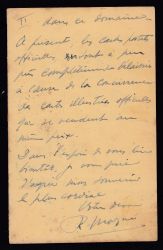 II dans ce domaine.
A présent, les cartes postales
officielles sont à peu
près complètement délaissées
à cause de la concurrence
de carte illustrées officielles
qui se vendent au
même prix.
Dans l'espoir de vous lire
bientôt, je vous prie
d'agréer mon souvenir
le plus cordial
R.